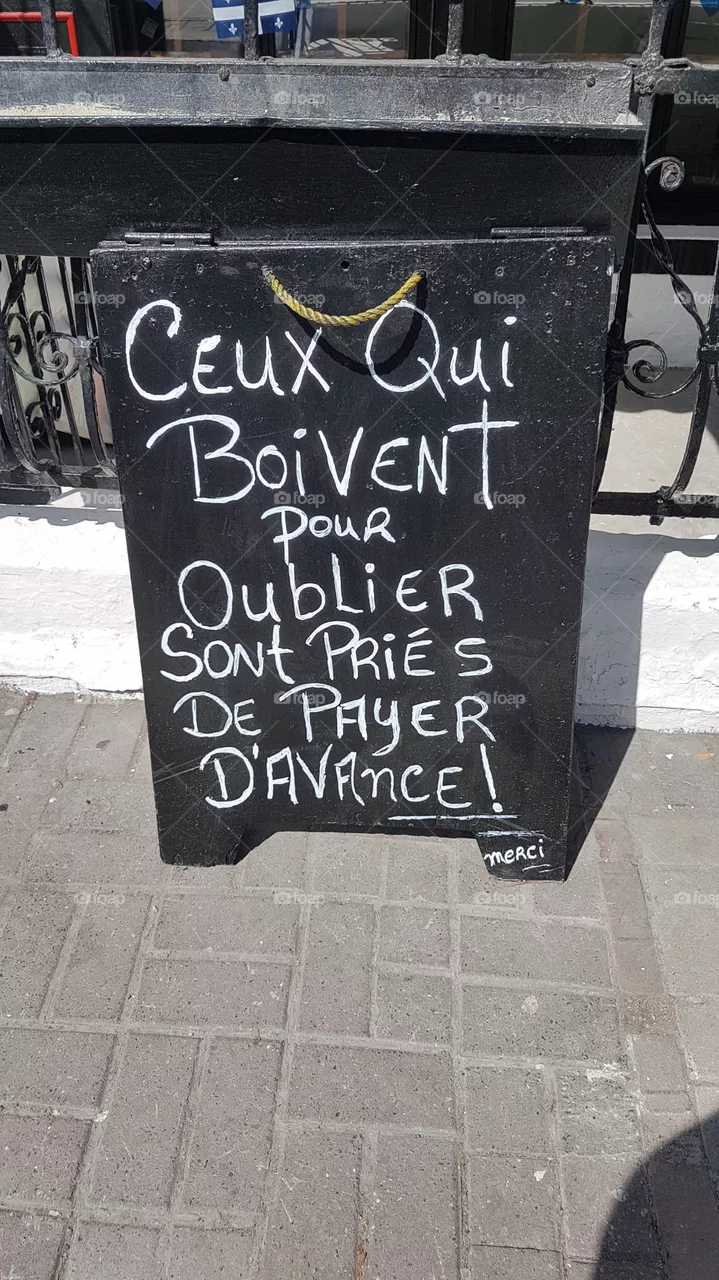 Ceux Qui
Boivent
pour
Oublier
Sont Priés
De Payer
D'Avance!
merci
foap